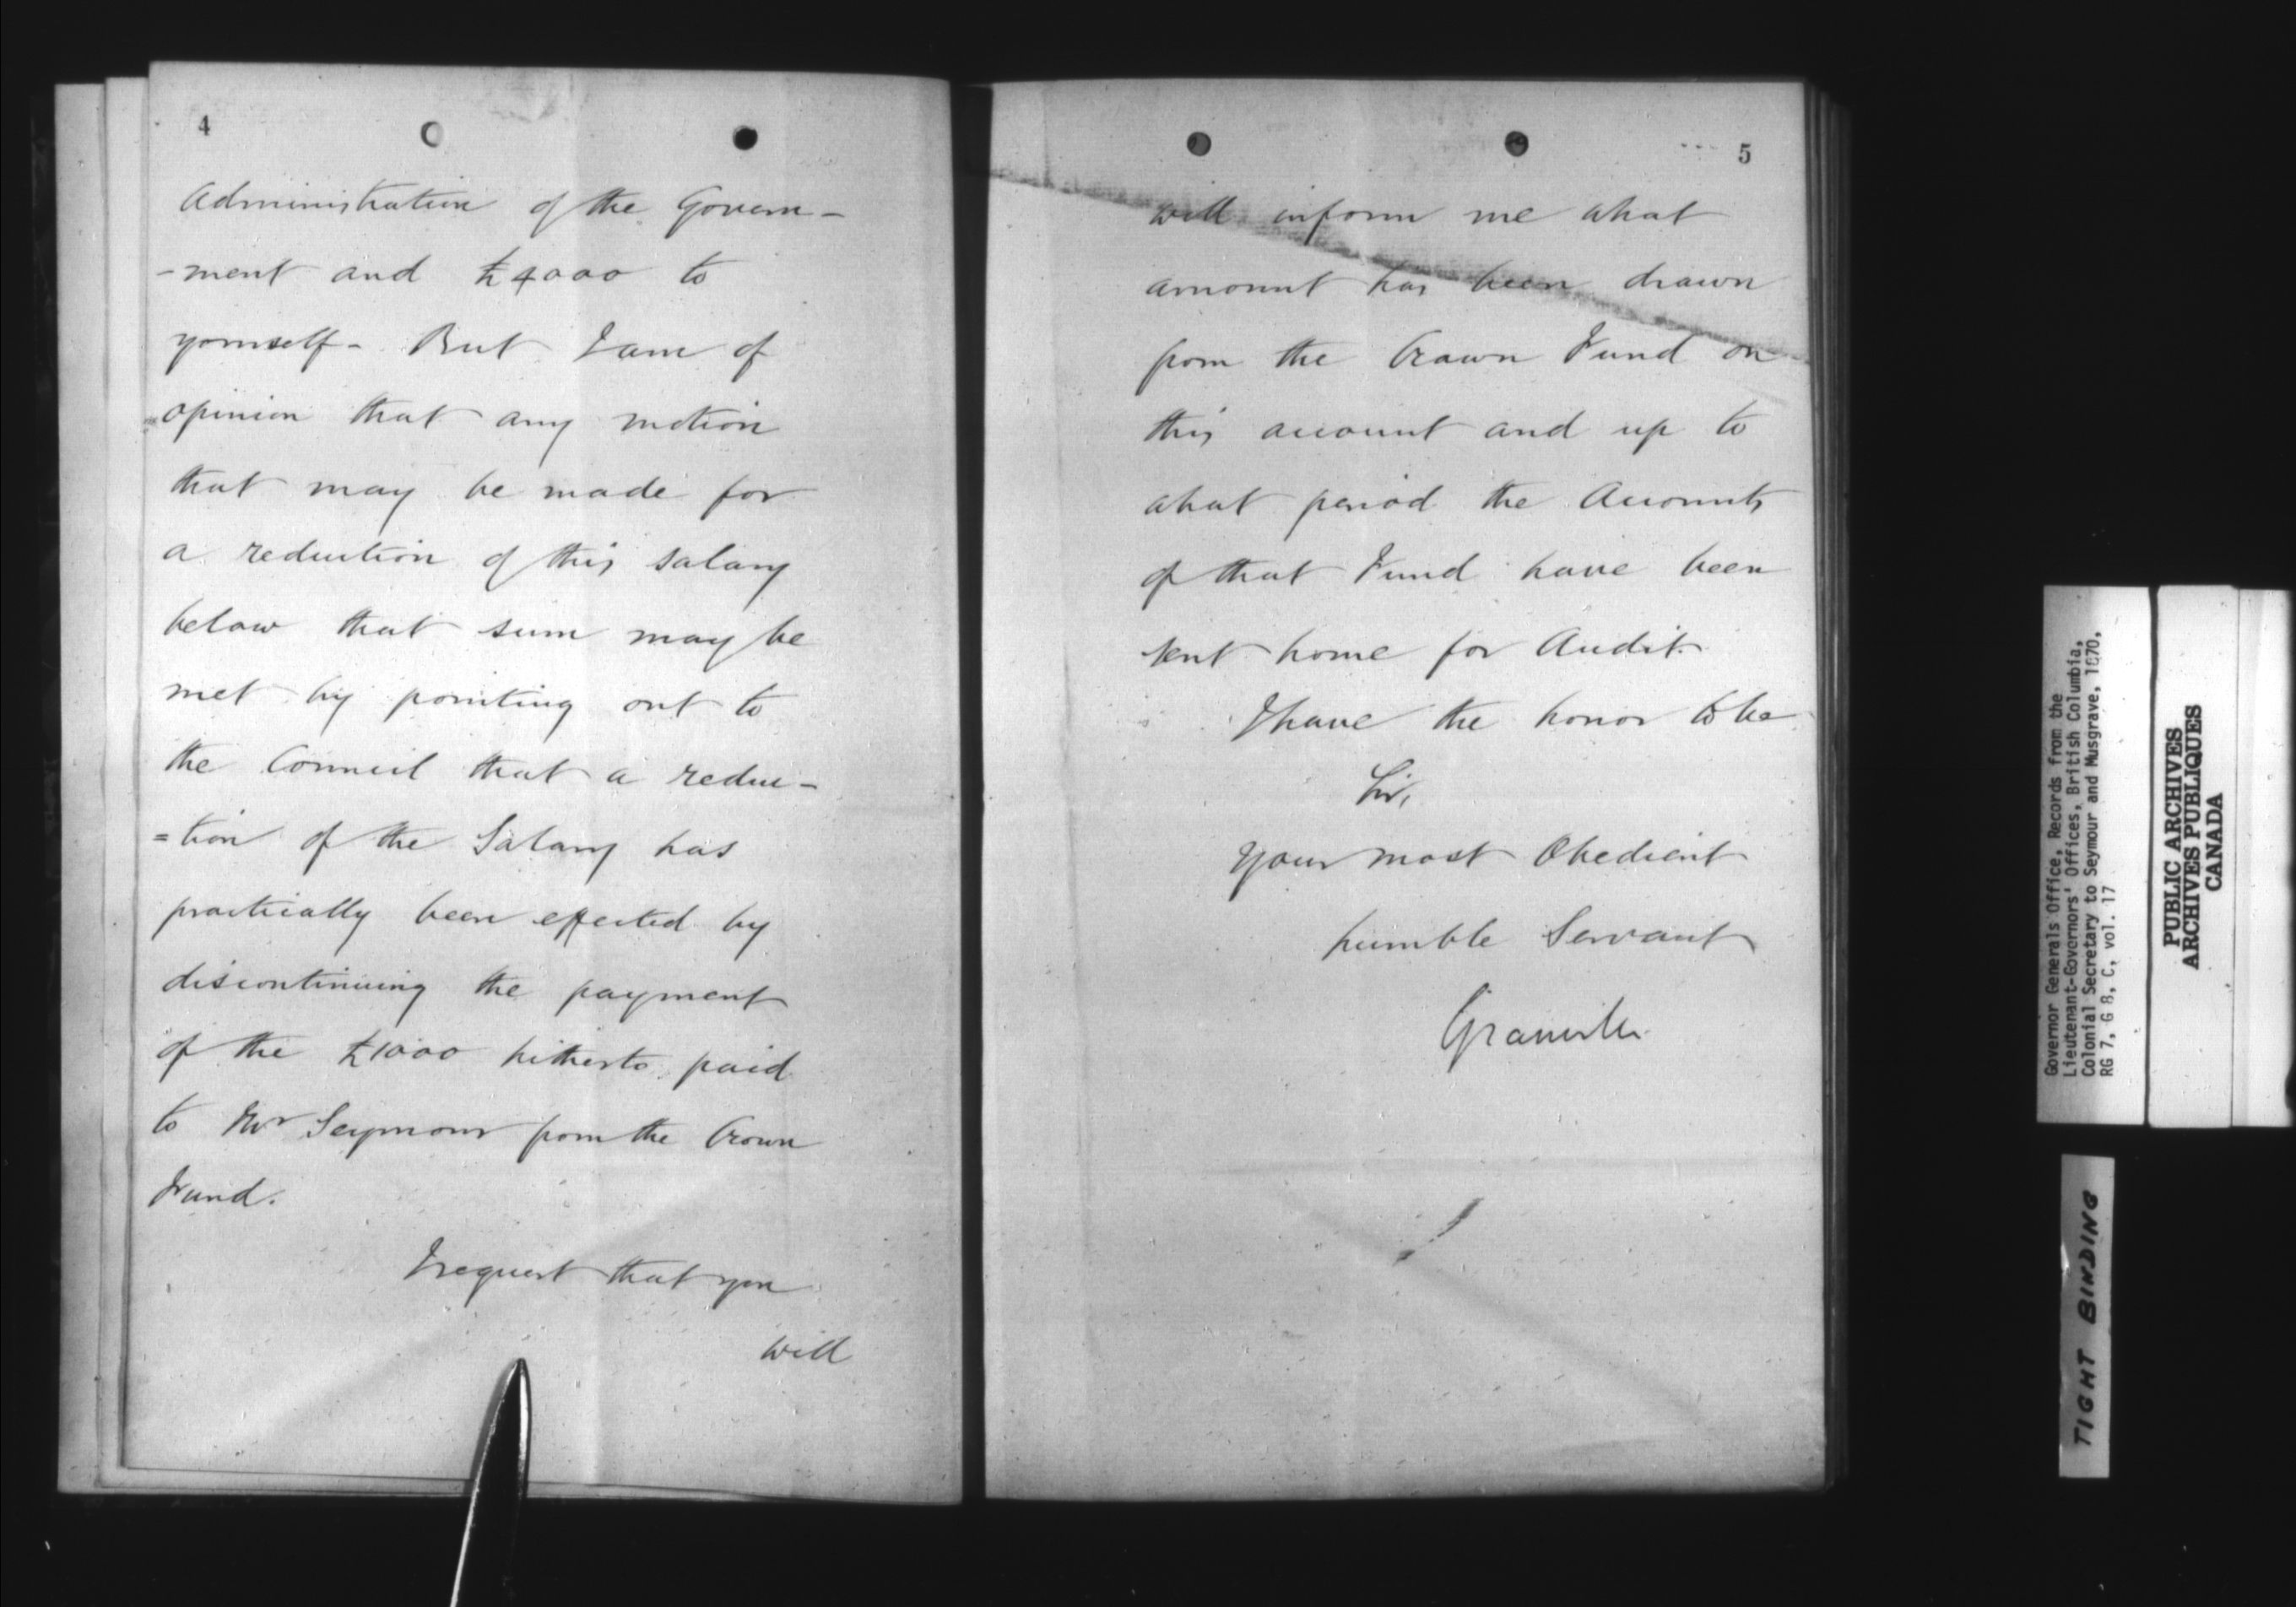 4
Administration of the Govern-
-ment and £4000 to
yourself- But I am of
opinion that any motion
that may be made for
a reduction of this salary
below that sum may be
met by pointing out to
the Council that a reduc-
=tion of the Salary has
practically been effected by
discontinuing the payment
of the £1000 hitherto paid
to Mr Seymour from the Crown
Fund.
I request that you
will
5
will inform me what
amount has been drawn
from the Crown Fund on
this account and up to
what period the Accounts
of that Fund have been
sent home for Audit.
I have the honor to be
Sir,
Your most Obedient
humble Servant
Granville
Governor Generals Office, Records from the
Lieutenant-Governors' Offices, British Columbia,
Colonial Secretary to Seymour and Musgrave, 1870,
RG 7, G 8, C, vol. 17
PUBLIC ARCHIVES
ARCHIVES PUBLIQUES
CANADA
TIGHT BINDING